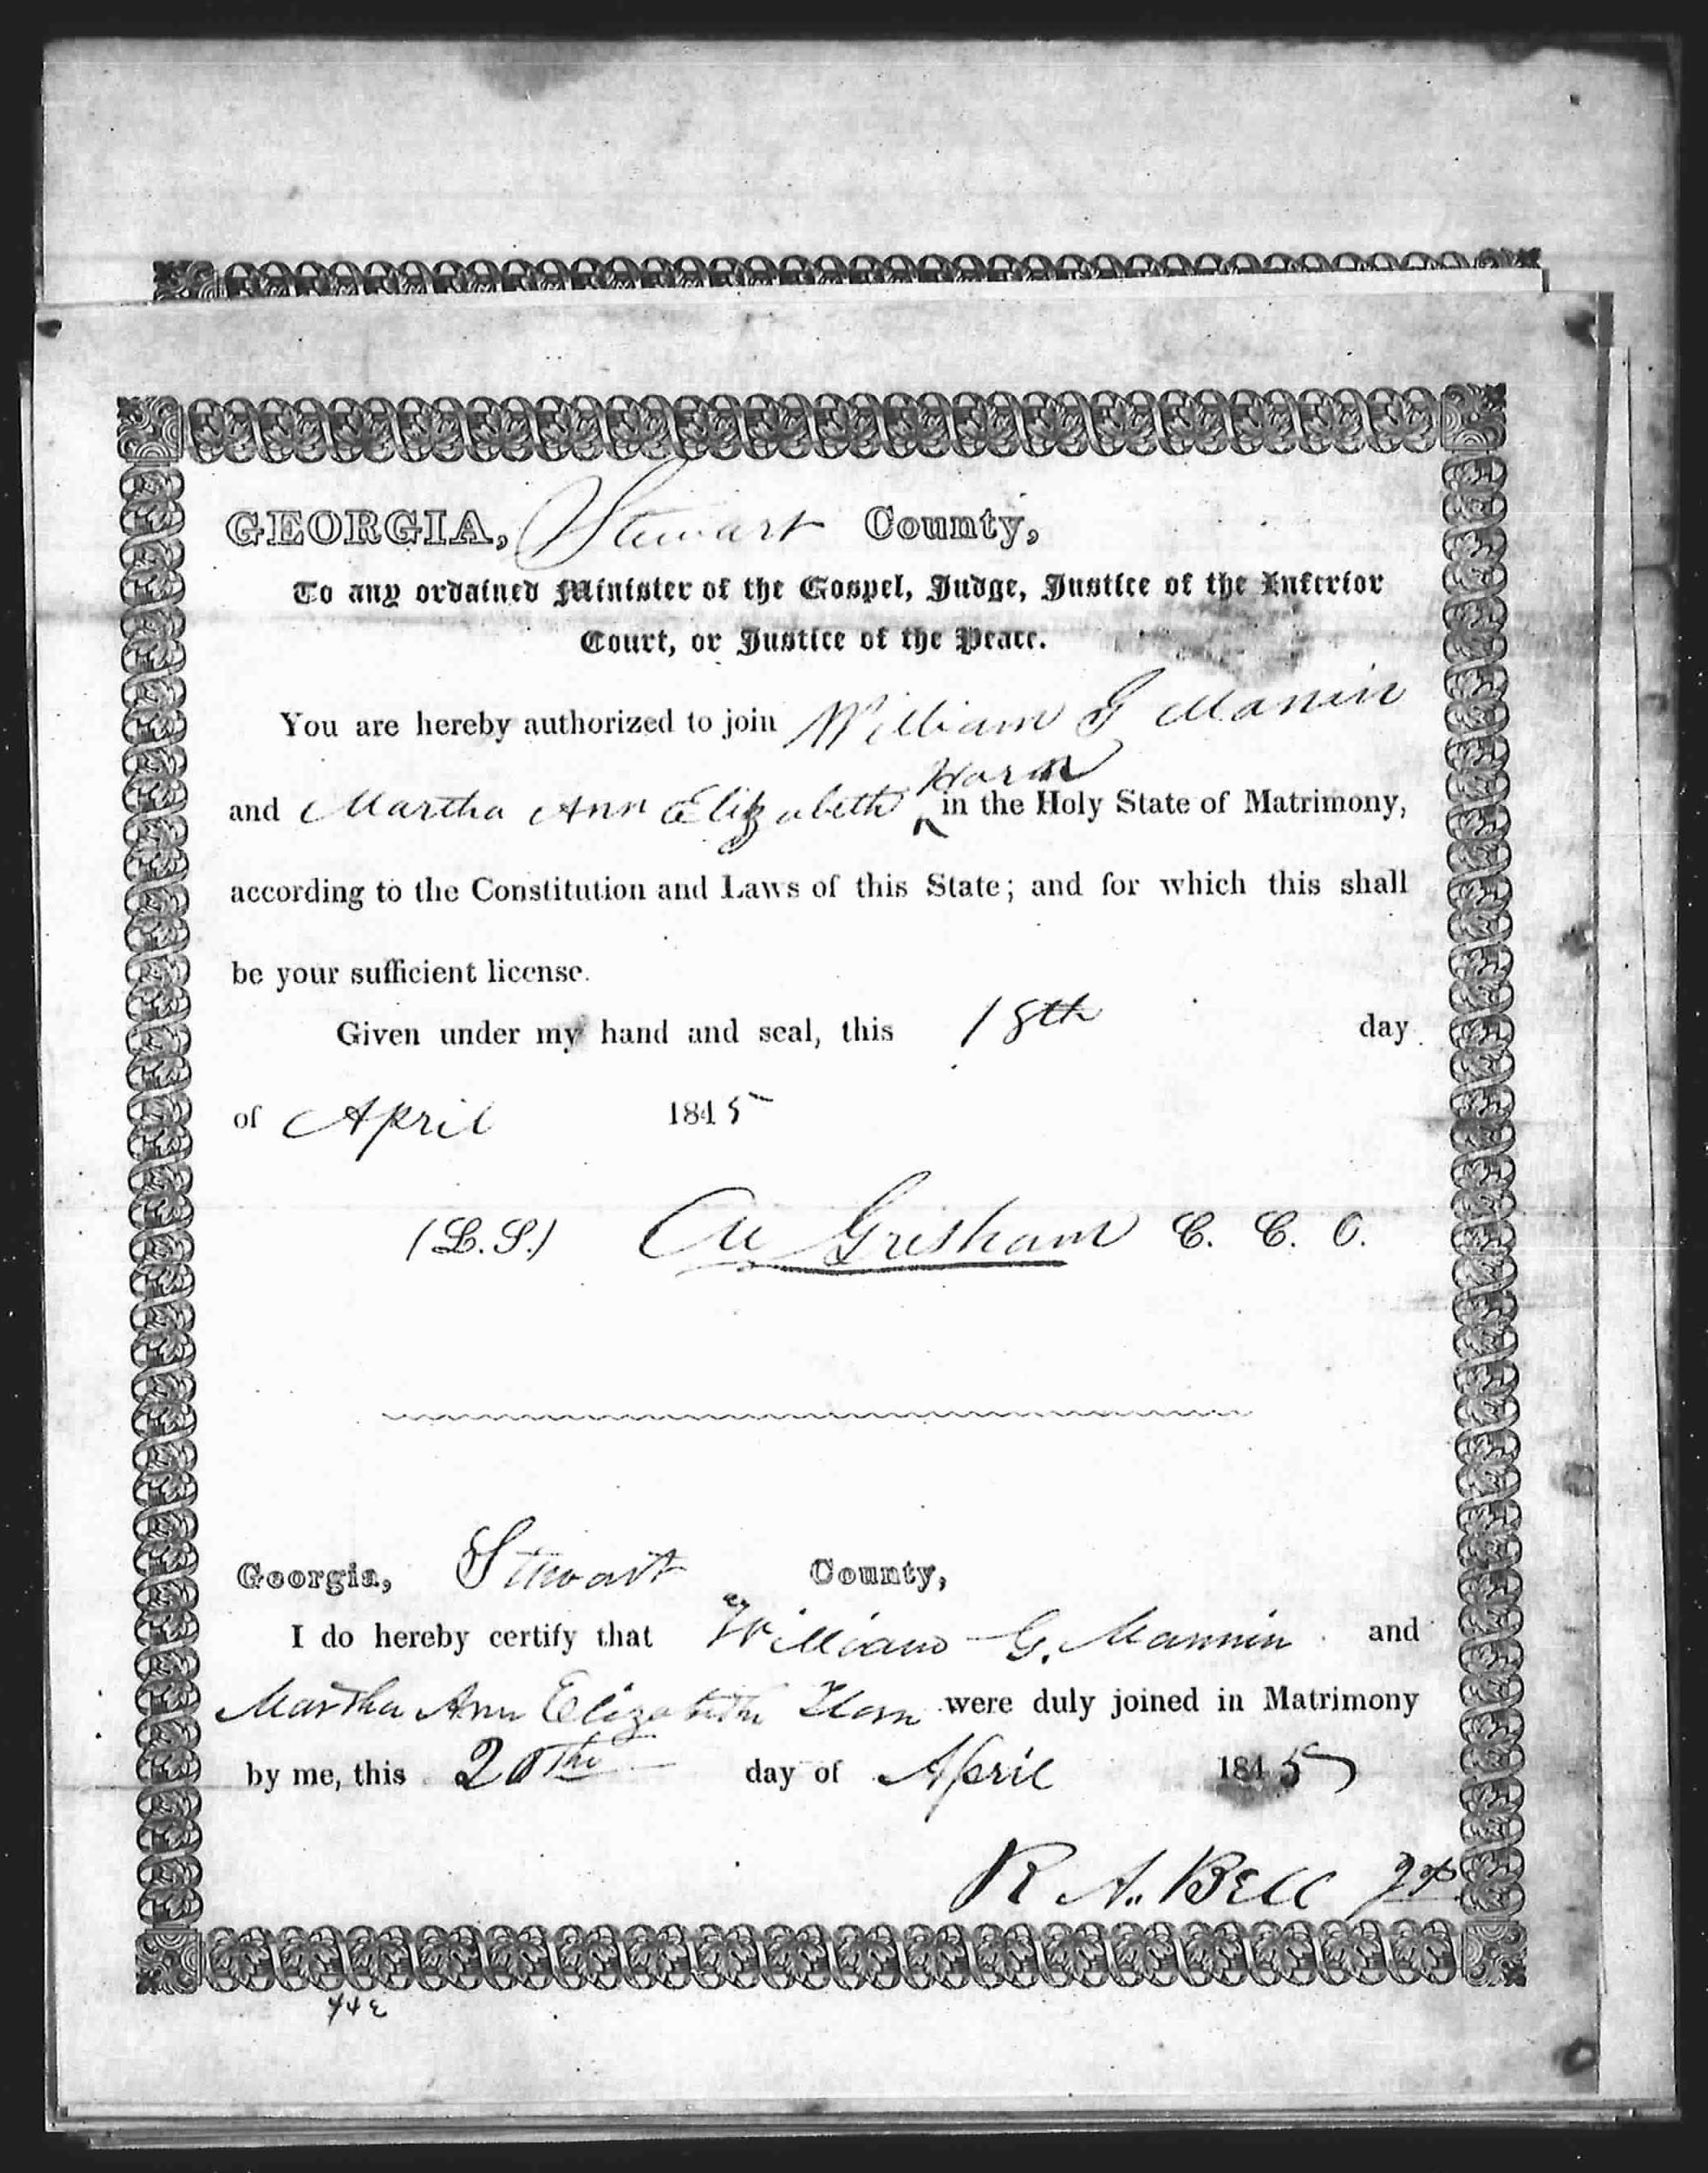 GEORGIA, Stewart County,
To any ordained Minister of the Gospel, Judge, Justice of the Inferior
Court, or Justice of the Peace.
You are hereby authorized to join William G Mannin
Horn
and Martha Ann Elizabeth ‸ in the Holy State of Matrimony,
according to the Constitution and Laws of this State; and for which this shall
be your sufficient license.
Given under my hand and seal, this 18th day
of April 1845
(L.S.) Gresham C. C. O.
Georgia, Stewart County,
I do hereby certify that William G. Mannin and
Martha Ann Elizabeth Horn were duly joined in Matrimony
by me, this 20th day of April 1845
R A. Bell JP